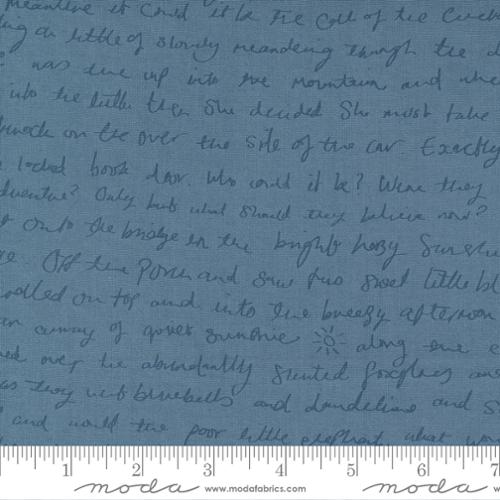 meantime it could it be the call of the
ing an little of slowly meandering through the
was up into the mountain and
into the little then she decided she must take
knock on the over the side of the car. Exactly
locked book door. Who could it be? Were they
dventure? Only but what should they believe now?
onto the bridge in the bright hazy sunshine
Off the porch and saw two sweet little bl
on top and into the breezy afternoon
an away of quiet sunshine along the
over the abundantly scented foxgloves and
as they bluebells and dandelions and s
and would the poor little elephant what
1 2 3 4 5 6 7
moda www.modafabrics.com moda